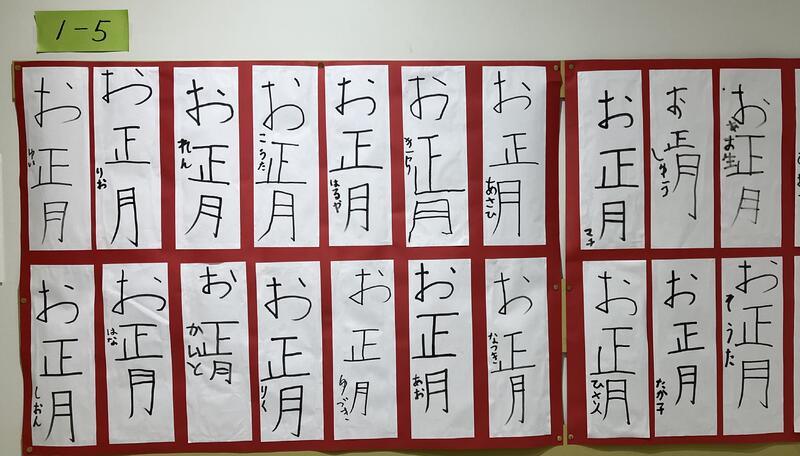 1-5
お正月
けい
お正月
りお
お正月
れん
お正月
こうた
お正月
はるや
お正月
お正月
あさひ
お正月
マチ
お正月
しゅう
お正月
お正月
しおん
お正月
はな
お正月
かいと
お正月
りく
お正月
ゆづき
お正月
あお
お正月
なつき
お正月
お正月
お正月
そうた